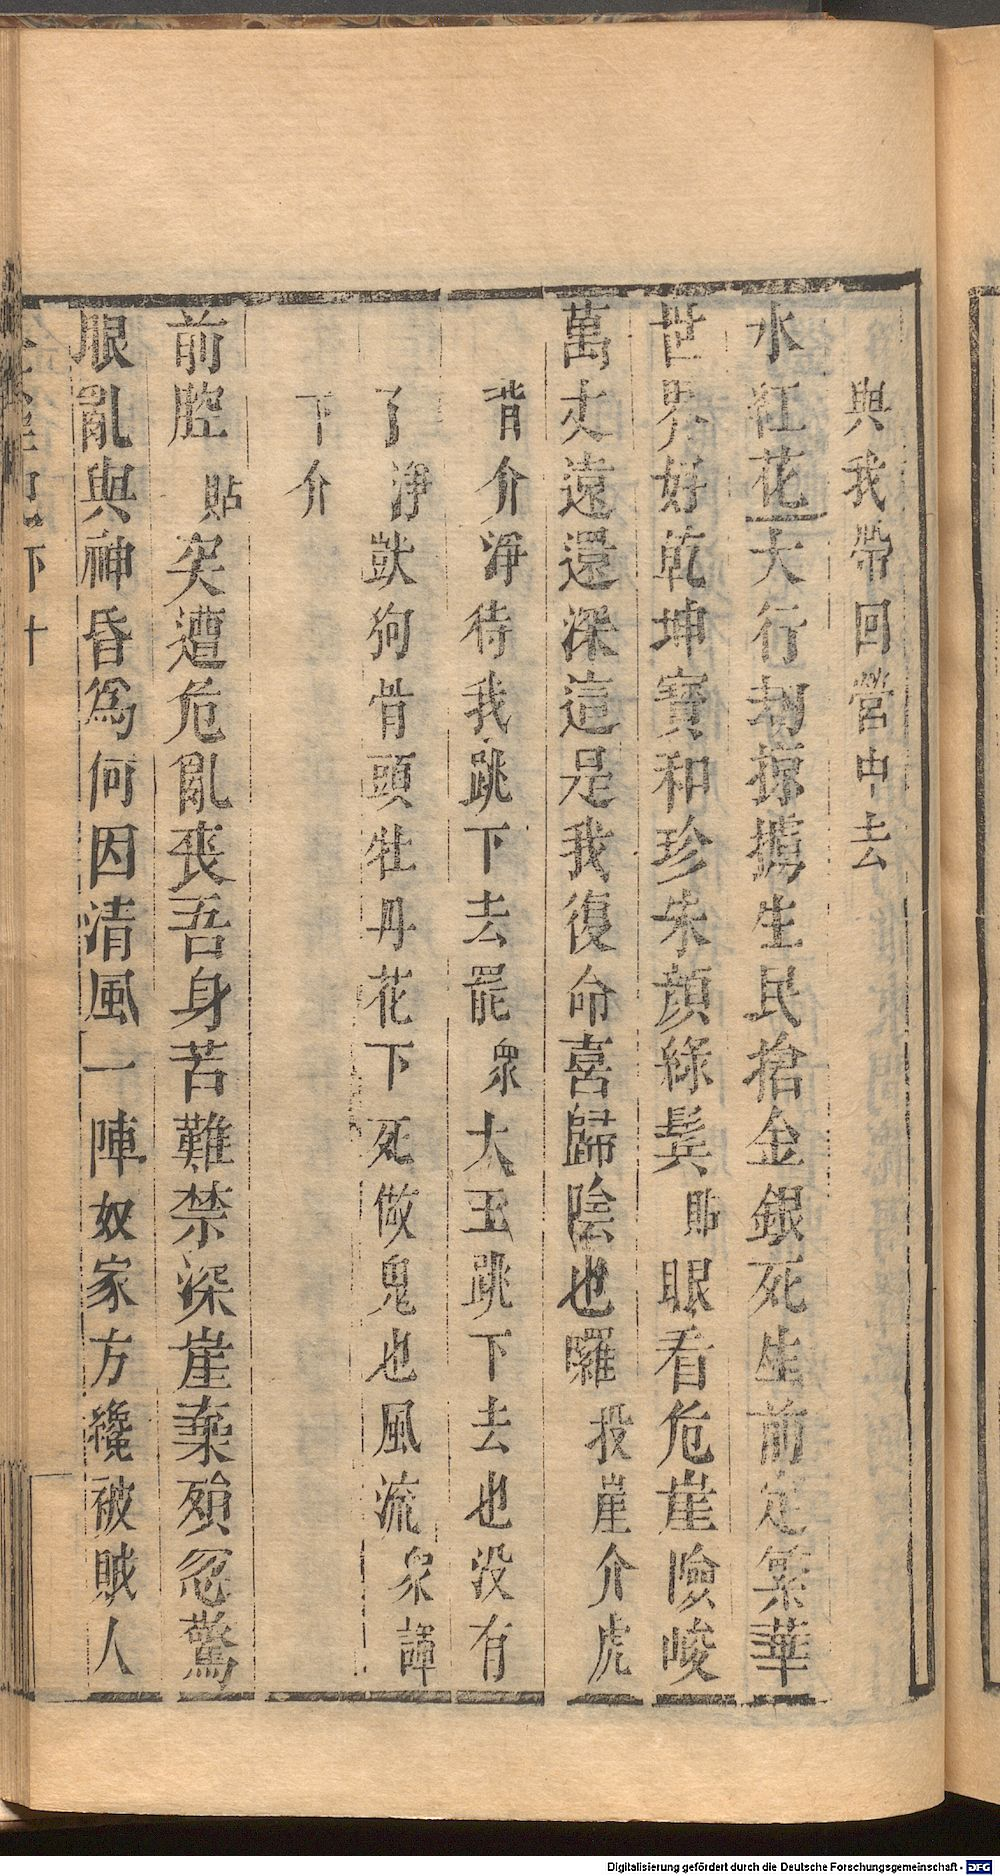 與我帶回營中去
水紅花大行刼掠擄生民搶金銀死生前定繁華
世界好乾坤寳和珍朱顔綠鬂貼眼看危崖險峻
萬丈遠還深這是我復命喜歸陰也囉投崖介虎
背介淨待我跳下去罷衆大王跳下去也没有
了淨獃狗骨頭牡丹花下死做鬼也風流衆諢
下介
前腔貼矣遭危亂喪吾身苦難禁深崖棄殞忽驚
眼亂與神昏爲何因清風一陣奴家方纔被賊人
下十
Digitalisierung gefördert durch die Deutsche Forschungsgemeinschaft - DFG